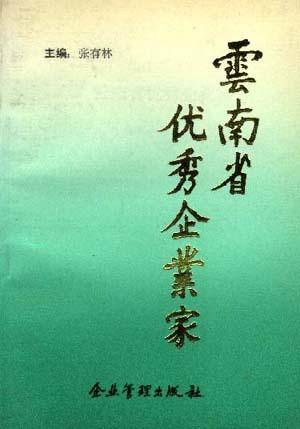 主编：张有林
雲南省
优秀企業家
企业管理出版社